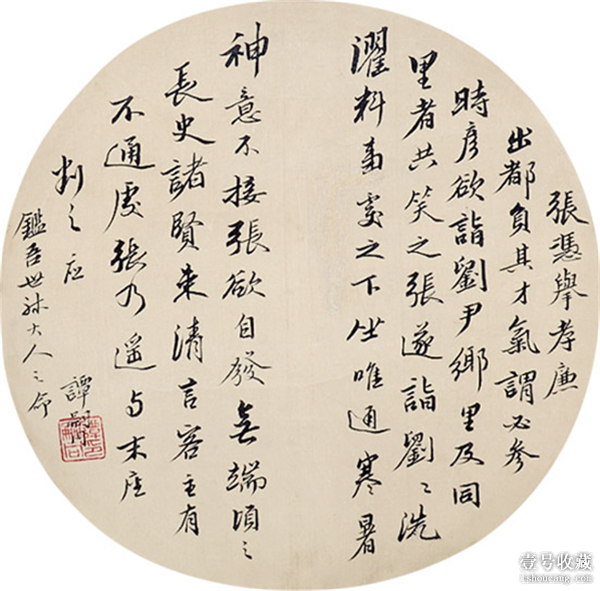 張憑舉孝廉
出都負其才氣謂必參
時彥欲詣劉尹鄉里及同
里者共笑之張遂詣劉〻洗
濯料事處之下坐唯通寒暑
神意不接張欲自發無端頃之
長史諸賢来清言客主有
不通處張乃遥与末座
判之应
鑑吾世叔大人之命
譚嗣同
壹号收藏
1shoucang.com